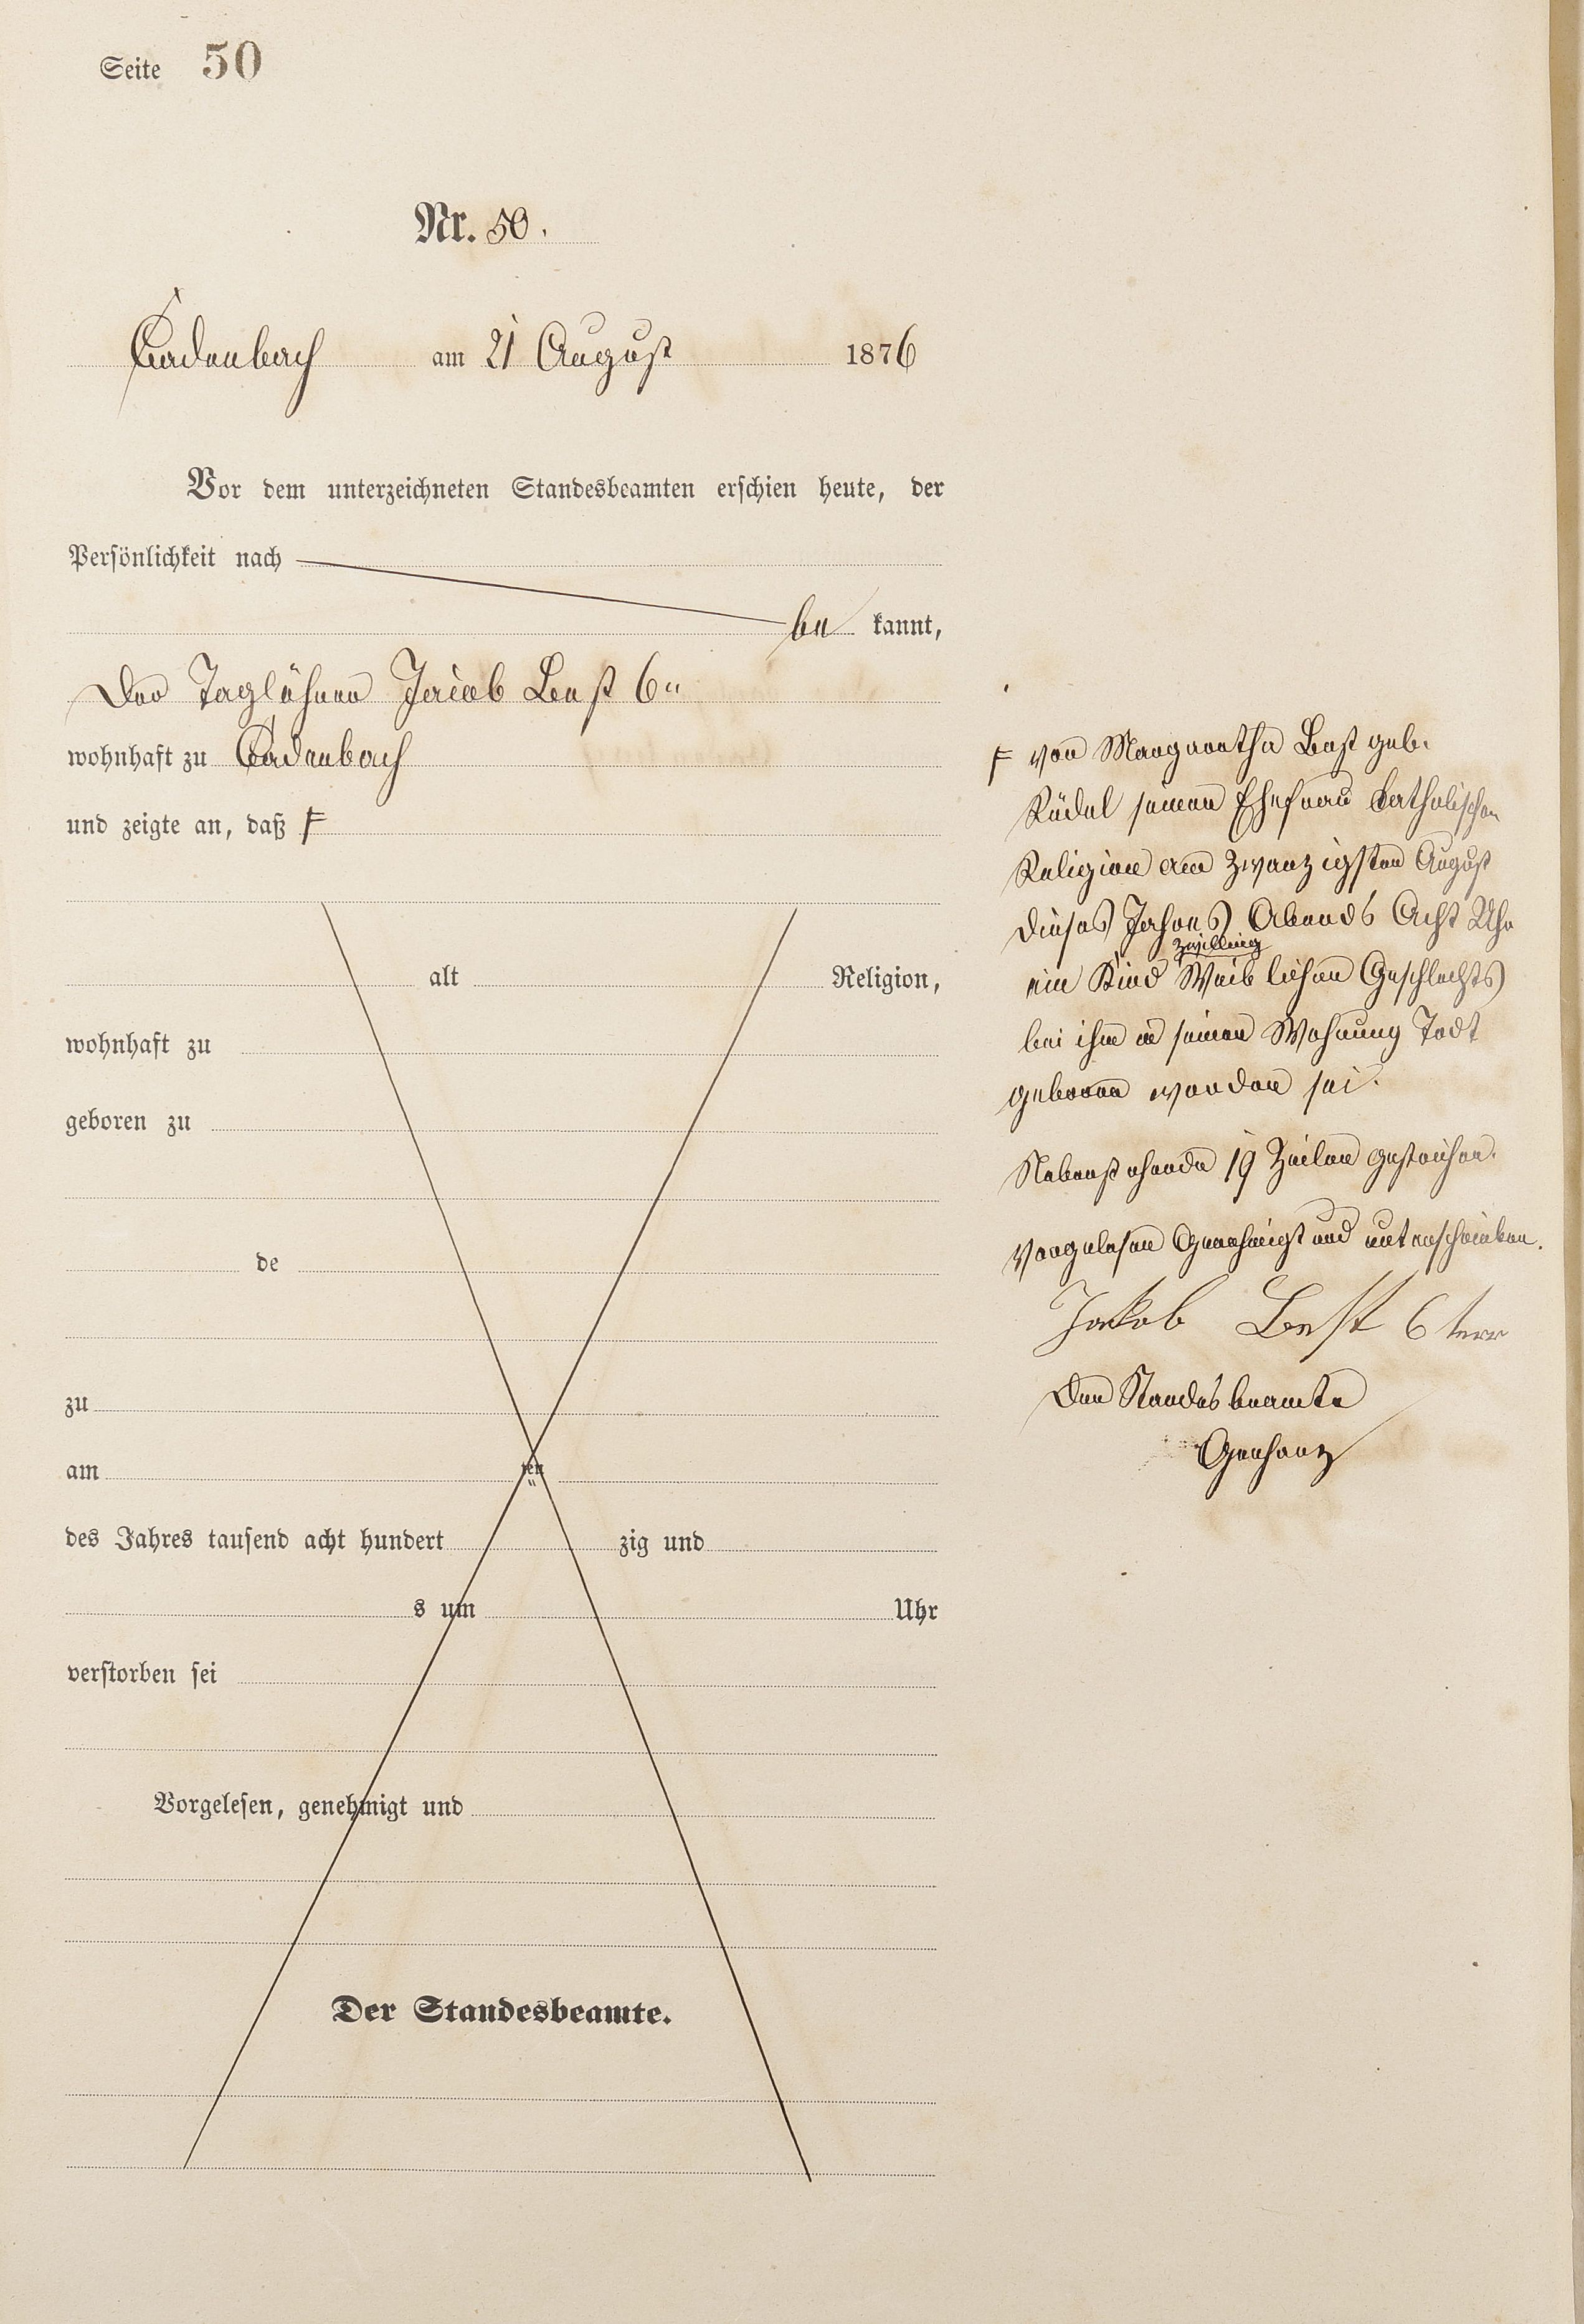 Seite 50
Nr. 50.
Cadenbach am 21 August 1876
Vor dem unterzeichneten Standesbeamten erschien heute, der
Persönlichkeit nach
be kannt,
Der Taglöhner Jacob Best 6"
wohnhaft zu Cadenbach
und zeigte an, daß F
alt Religion,
wohnhaft zu
geboren zu
de
zu
am ten
des Jahres tausend acht hundert zig und
s um Uhr
verstorben sei
Vorgelesen, genehmigt und
Der Standesbeamte.
F von Margaretha Best geb.
Rüdel seiner Ehefrau Katholischer
Religion am zwanzigsten August
dieses Jahres Abends Acht Uhr
Zwilling
ein Kind Weiblichen Geschlechts
bei ihm in seiner Wohnung Todt
geboren worden sei.
Nebenstehende 19 Zeilen gestrichen.
Vorgelesen Genehmigt und unterschrieben.
Jakob Best 6 terr
Der Standesbeamte
Gerharz